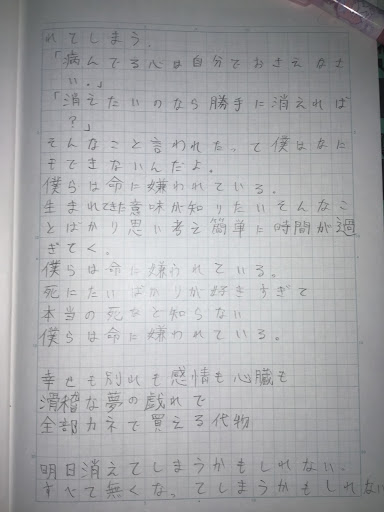 れてしまう.
「病んでる心は自分でおさえなさ
い.」
「消えたいのなら勝手に消えれば
?」
そんなこと言われたって僕はなに
もできないんだよ.
僕らは命に嫌われている.
生まれてきた意味が知りたいそんなこ
とばかり思い考え簡単に時間が過
ぎてく.
僕らは命に嫌われている.
死にたいばかりが好きすぎて
本当の死など知らない
僕らは命に嫌われている.
幸せも別れも感情も心臓も
滑稽な夢の戯れで
全部カネで買える代物
明日消えてしまうかもしれない.
すべて無くなってしまうかもしれない